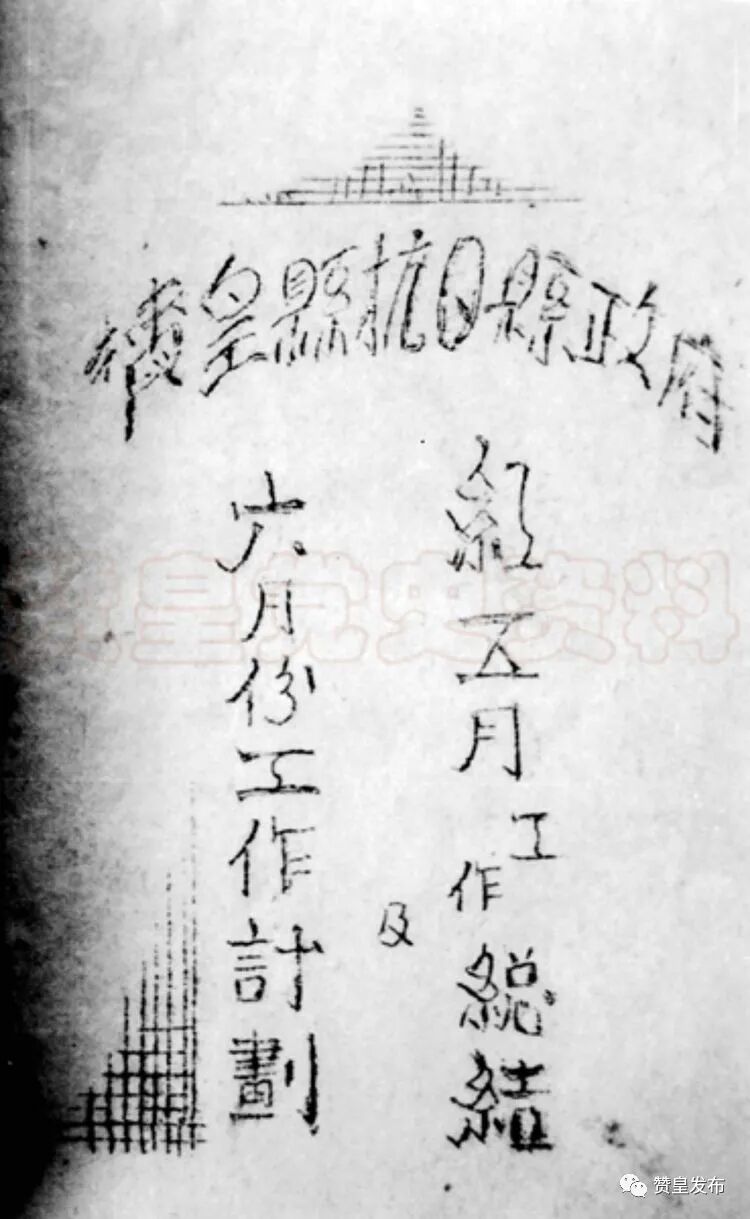 贊皇縣抗日縣政府
紅五月工作總結
及
六月份工作計劃
赞皇党史资料
赞皇发布